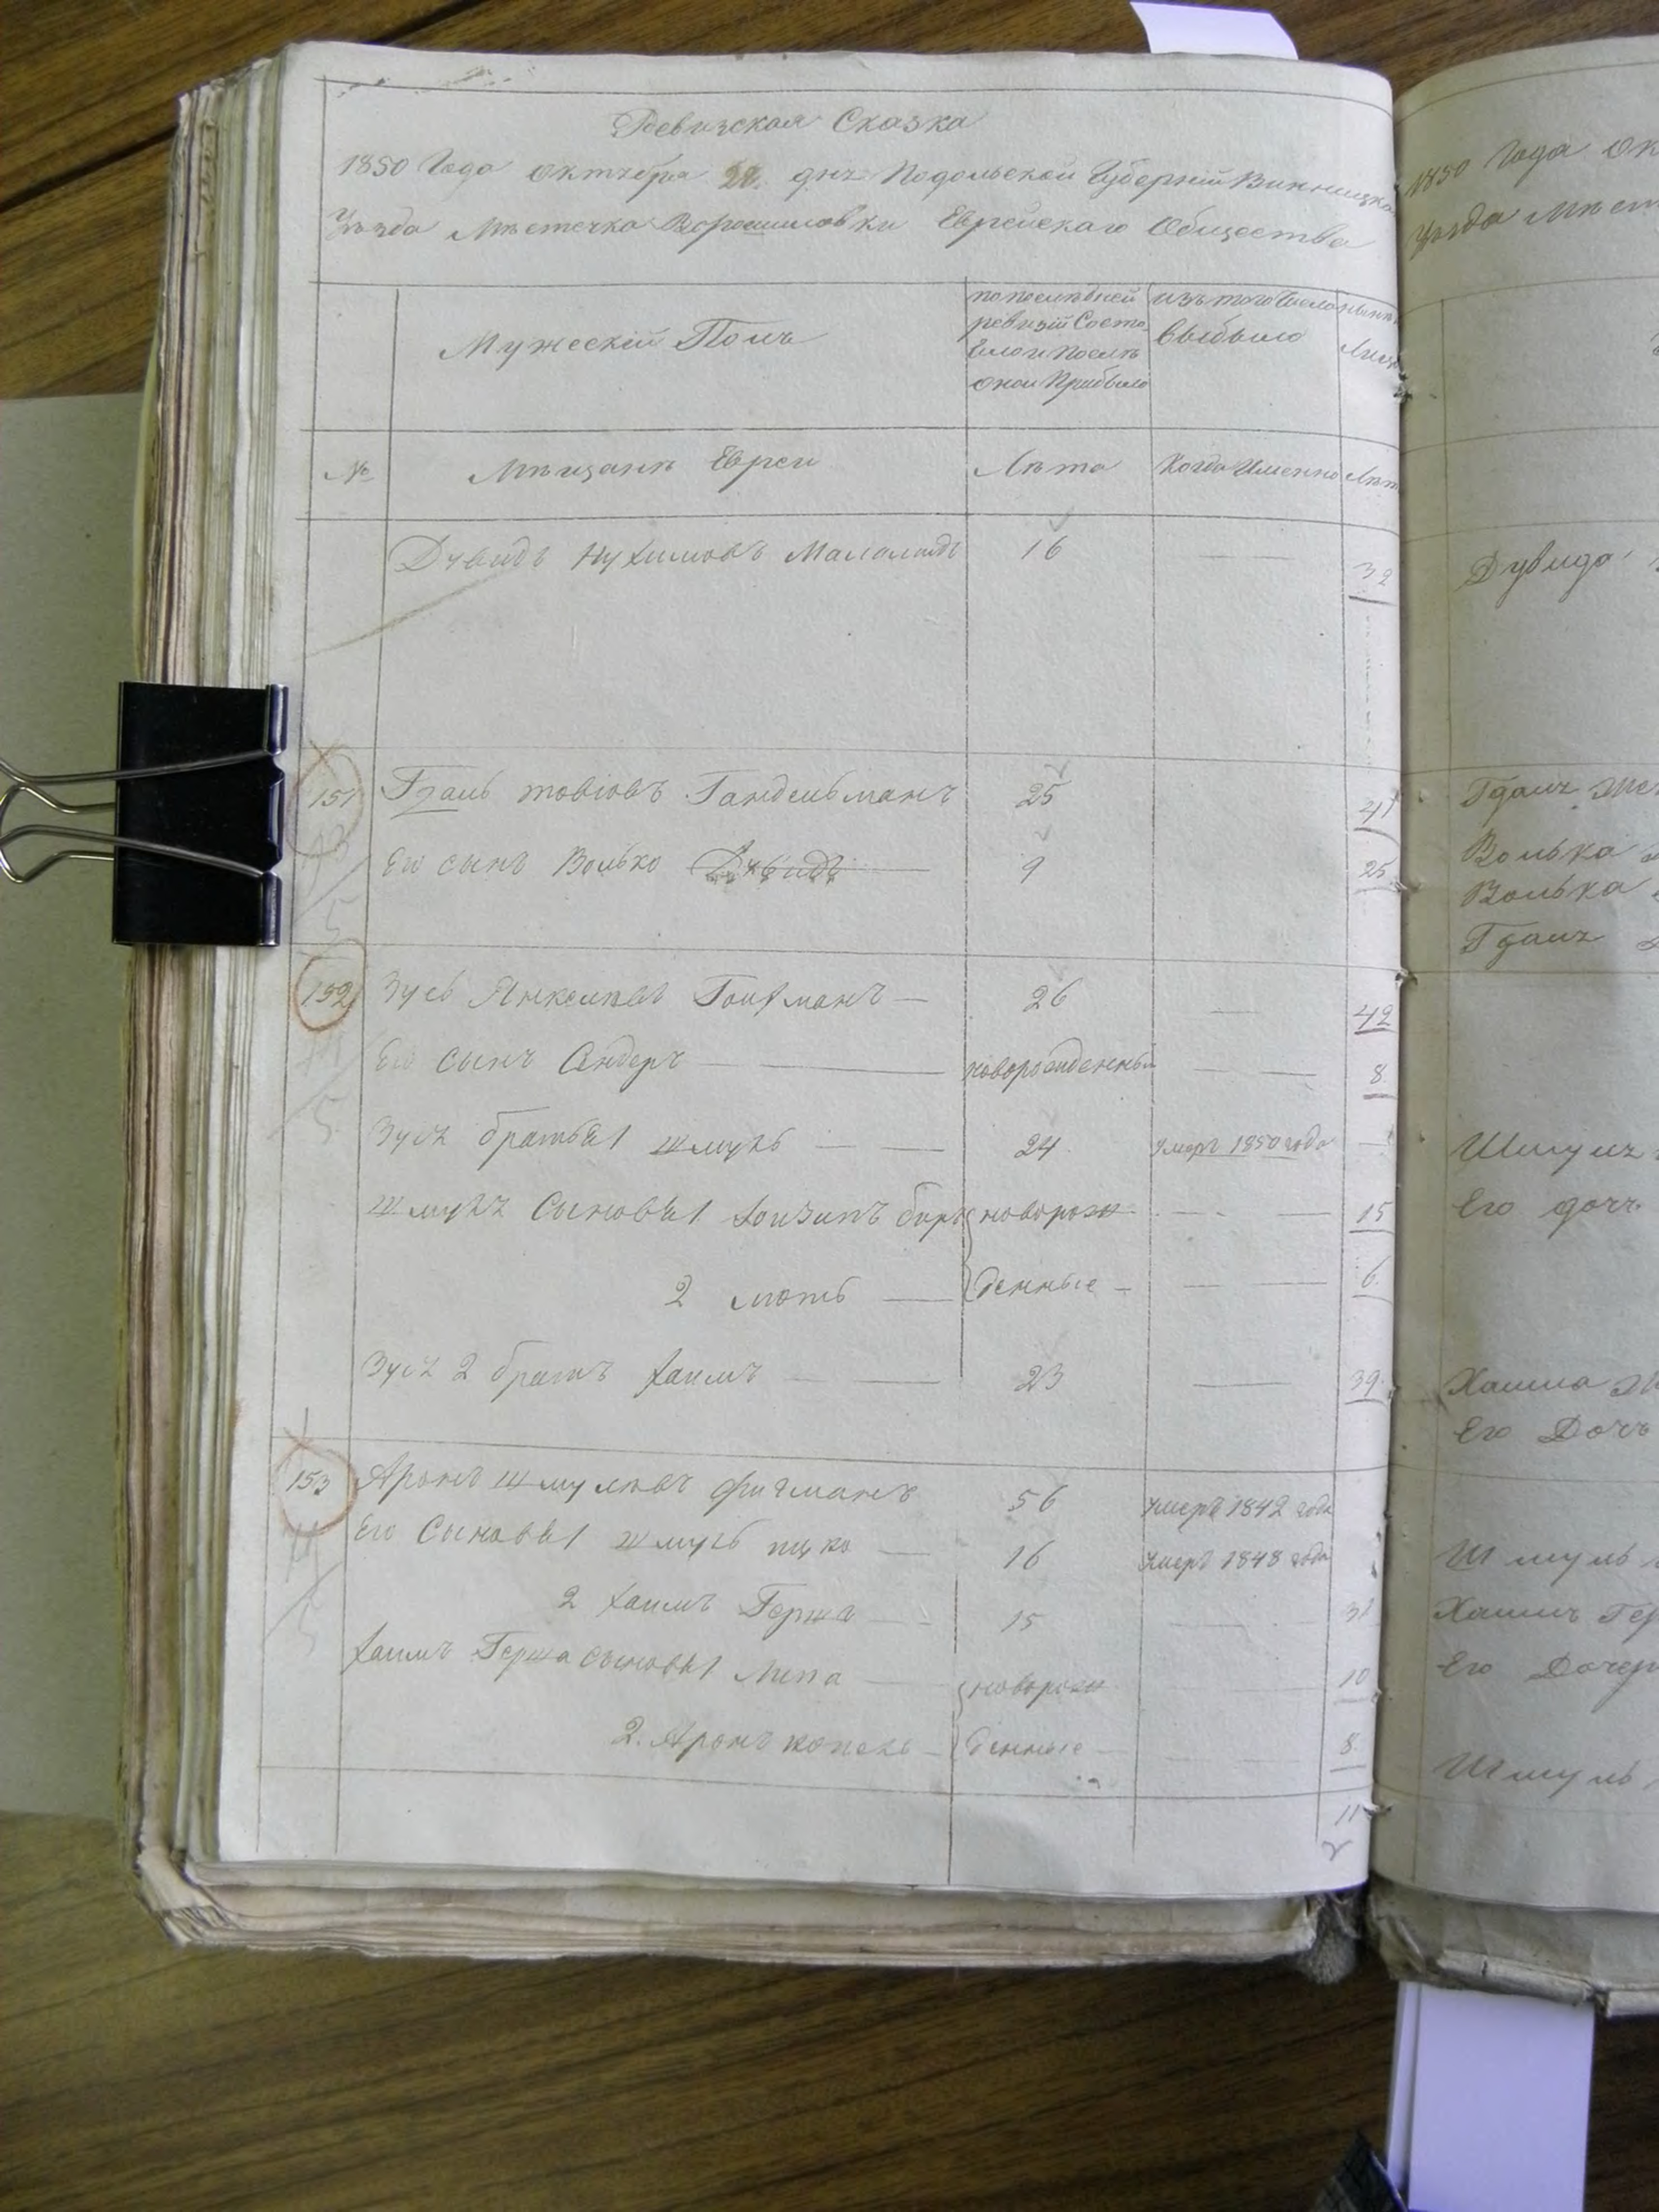 Ревизская Сказка
1850 Года Октября 22 дня Подольской Губерніи Винницка
Уезда Мѣстечка Ворошиловки Еврейскаго Общества
Мужескій Полъ
по послѣдней ревизіи Состояло и Послѣ оной Прибыло
изъ того Числа выбыло
№ Мѣщанѣ Евреи Лѣта Когда Именно Лѣт
Дувидъ Нухимовъ Маламидъ 16 — 32
151 Гдаль товіовъ Гандельманъ 25 41
Его сынъ Волько Дувидъ 9 25
152 Зусь Янкелевъ Гойхманъ — 26 — 42
Его Сынъ Сендеръ — новорожденный — 8
Зуся братья 1 шмуль — 24 умеръ 1850 года —
Шмуля Сыновья 1 бөръ новорож — 15
2 моть — денные — 6
Зуся 2 братъ хаимъ — 23 — 39
153 Аронъ Шмулевъ фигманъ 56 умеръ 1842 года
Его Сыновья 1 шмуль ицко — 16 умеръ 1848 года
2 хаимъ Герша — 15 — 31
хаимъ Герша сыновья 1 Липа — новорож — 10
2. Аронъ копель — денные — 8
11
1850 Года Ок
Уезда Мѣст
Дувида
Гдаля
Волька
Волька
Гдаля
Шмуля
Его дочь
Хаима
Его Дочь
Шмуль
Хаимъ Гер
Его Дочер
Шмуль